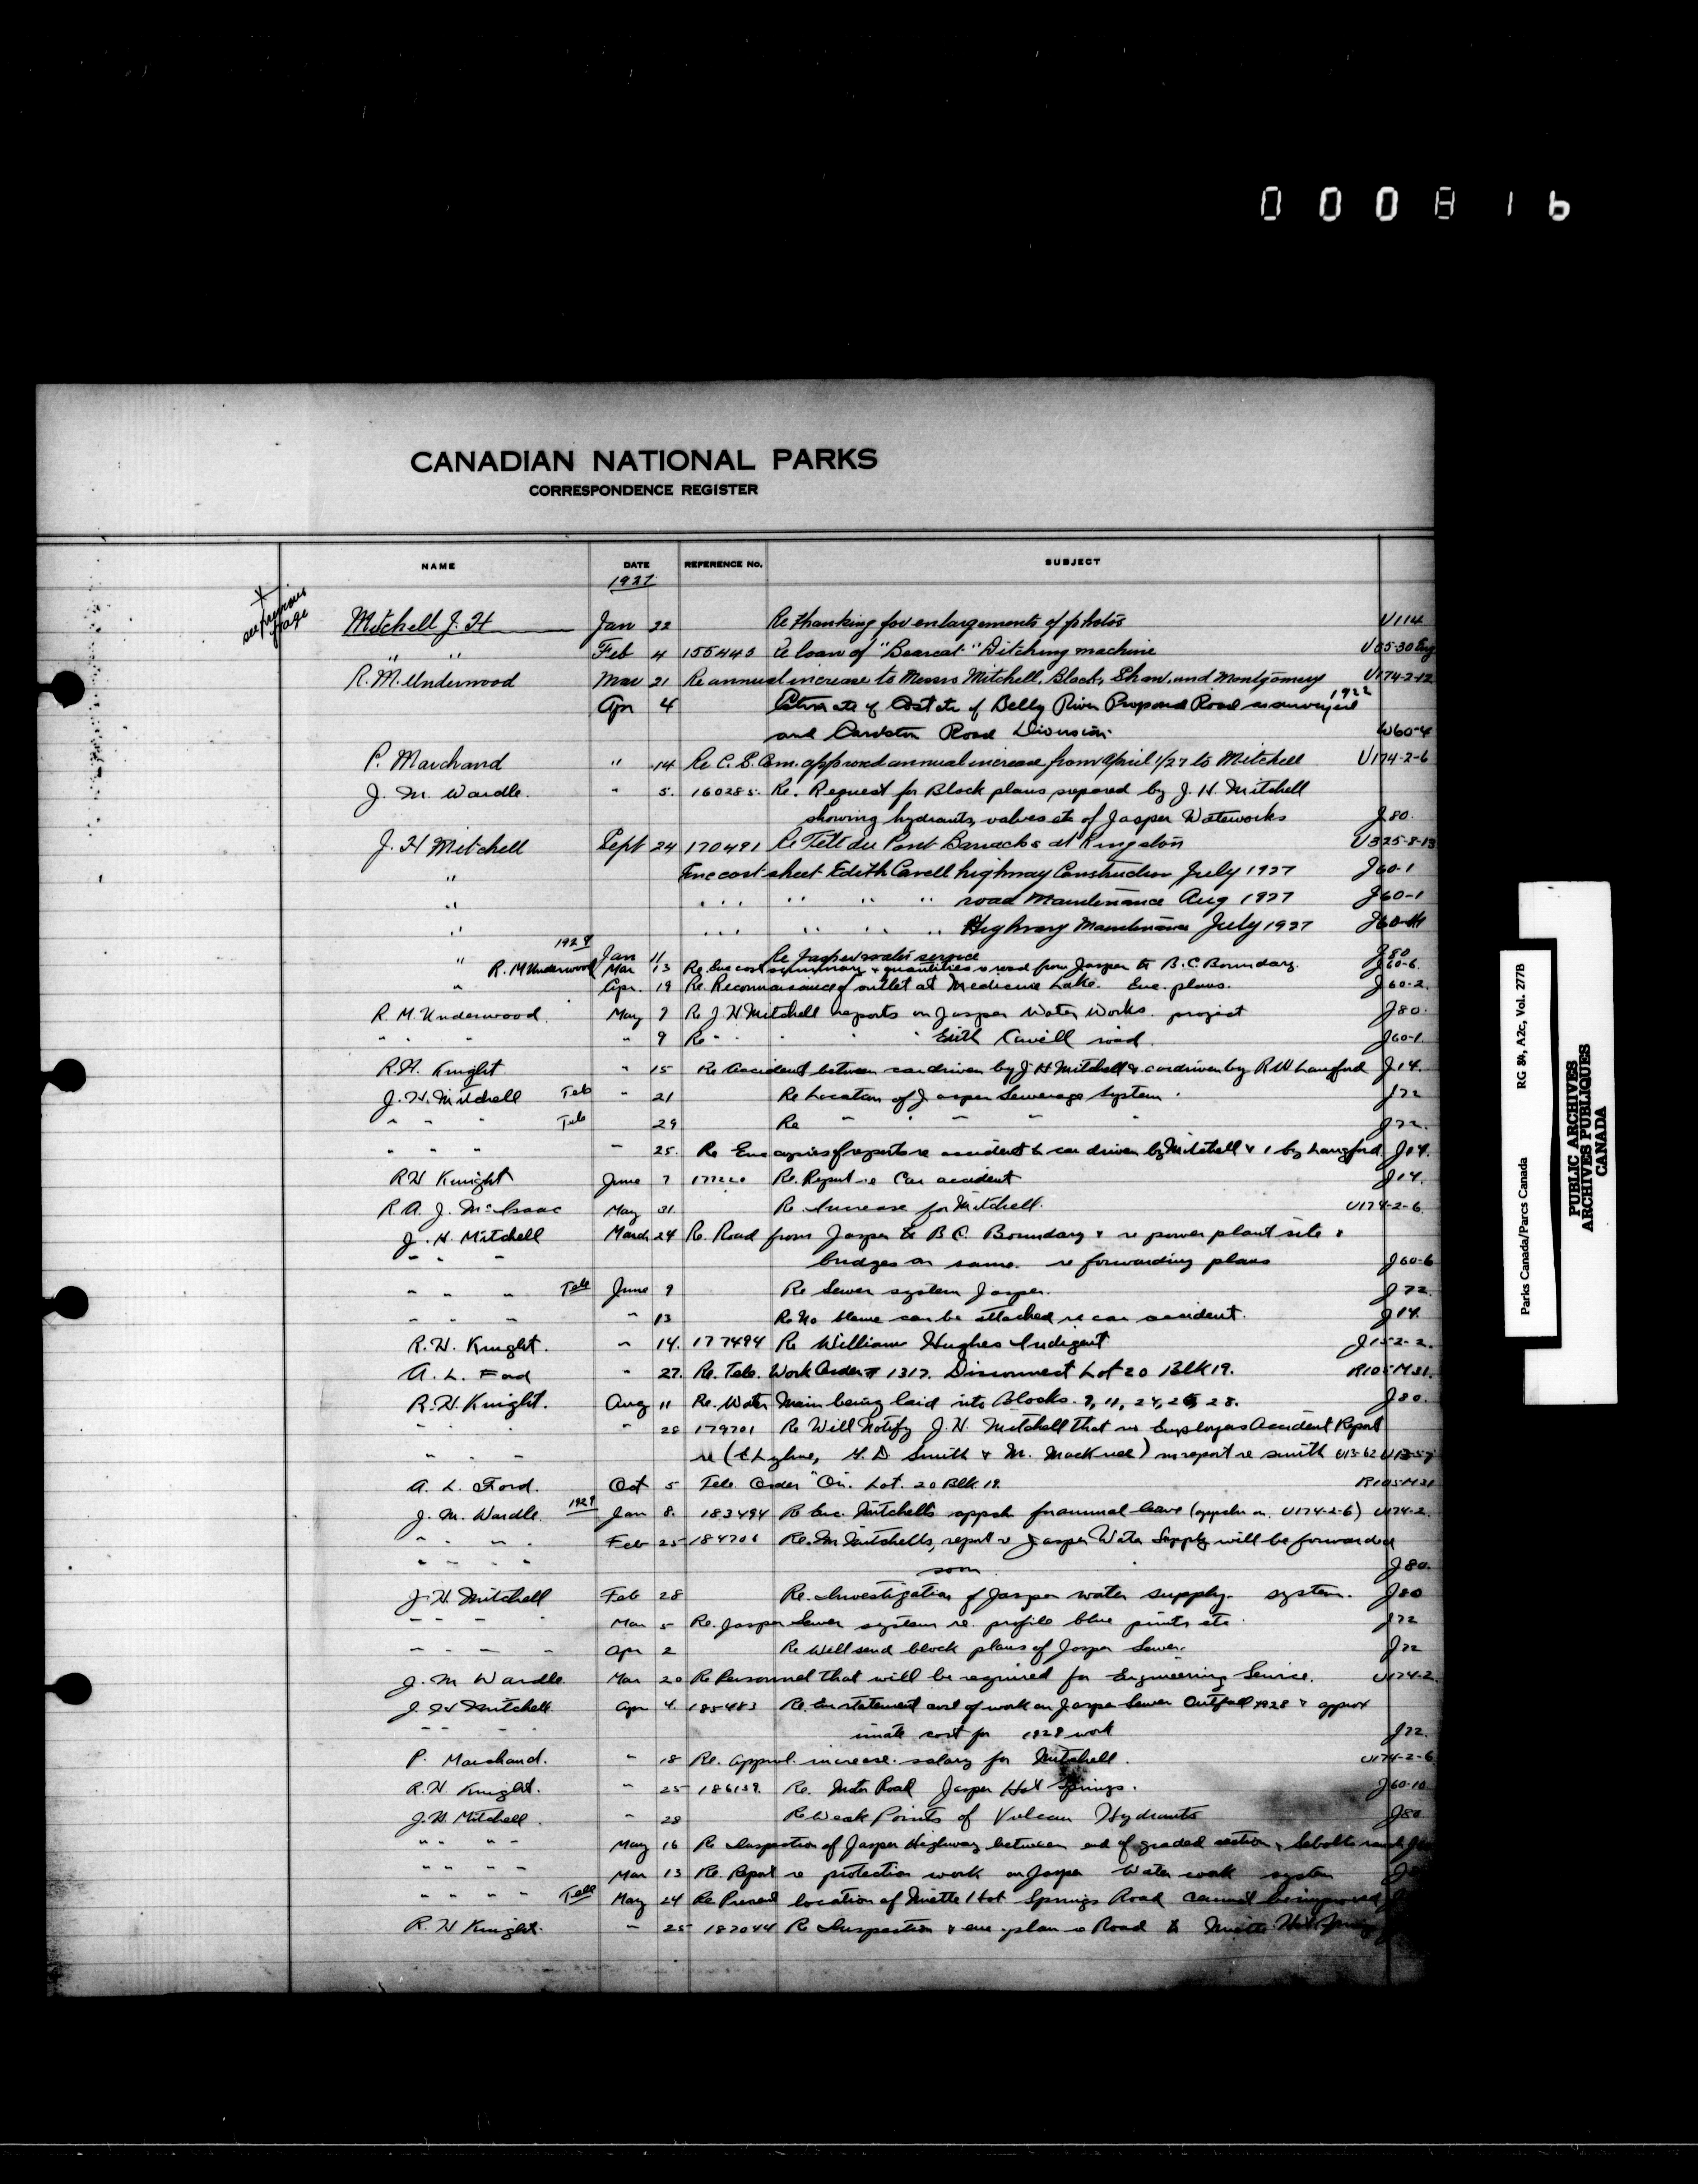 000816
CANADIAN NATIONAL PARKS
CORRESPONDENCE REGISTER
NAME DATE REFERENCE No. SUBJECT
1927
see previous page
Mitchell J. H Jan 22 Re thanking for enlargements of photos U114
" " Feb 4 155440 Re loan of "Bearcat" Ditching machine U55-30 Eng
R. M. Underwood Mar 21 Re annual increase to Messrs Mitchell, Black, Shaw, and Montgomery U174-2-12
Apr 4 Estimate of Cost etc of Belly River Proposed Road as surveyed 1922
and Cardston Road Diversion W60-4
P. Marchand " 14 Re C. S. Com. approved annual increase from April 1/27 to Mitchell U174-2-6
J. M. Wardle. " 5. 160285. Re. Request for Block plans prepared by J. H. Mitchell
showing hydrants, valves etc of Jasper Waterworks J80.
J. H Mitchell Sept 24 170491 Re Tete du Pont Barracks at Kingston U325-8-13
" Enc cost sheet Edith Cavell highway Construction July 1927 J60-1
" " " " " " " " road Maintenance Aug 1927 J60-1
" " " " " " " " Highway Maintenance July 1927
1928
" Jan 11 Re Jasper water service J80
R. M Underwood Mar 13 Re. Enc cost summary & quantities re road from Jasper to B.C. Boundary. J60-6.
" Apr. 19 Re. Reconnaissance of outlet at Medicine Lake. Enc. plans. J60-2.
R. M. Underwood May 7 Re J H Mitchell reports on Jasper Water Works. project J80.
" " " " 9 Re " " " " Edith Cavell road. J60-1
R. H. Knight " 15 Re Accident between car driven by J H Mitchell & car driven by R W Langford J14.
J. H. Mitchell Tele " 21 Re Location of Jasper Sewerage System. J72
" " " Tele 29 Re " " " " J72.
" " " " 25. Re Enc copies of reports re accident to car driven by Mitchell & 1 by Langford. J14.
R H Knight June 7 177220 Re. Report re Car accident J14.
R. A. J. McIsaac May 31. Re. Increase for Mitchell. U174-2-6.
J. H. Mitchell March 24 Re. Road from Jasper to B.C. Boundary & re power plant site &
" " " bridges on same. re forwarding plans J60-6
" " " Tele June 9 Re Sewer system Jasper. J72.
" " " " 13 Re No blame can be attached re car accident. J14.
R. H. Knight. " 14. 177494 Re William Hughes Indigent J152-2.
A. L. Ford " 27. Re. Tele. Work Order # 1317. Disconnect Lot 20 Blk 19. R105M31.
R. H. Knight. Aug 11 Re. Water Main being laid into Blocks. 9, 11, 24, 25, 28. J80.
" " " 28 179701 Re Will Notify J. H. Mitchell that re Employers Accident Report
" " " re ( Smith & M. ) re report re Smith U13-62 U13-57
A. L. Ford. Oct 5 Tele. Order "On. Lot. 20 Blk 19. R105M31
J. M. Wardle 1929 Jan 8. 183494 Re Enc. Mitchells appch for annual leave (appch on U174-2-6) U174-2.
" " " " Feb 25 184706 Re. Mr Mitchells, report re Jasper Water Supply will be forwarded
" " " " soon. J80.
J. H. Mitchell Feb 28 Re. Investigation of Jasper water supply. system. J80
" " " " Mar 5 Re. Jasper Sewer system re. profile blue prints etc. J72
" " " " Apr 2 Re Will send block plans of Jasper Sewer. J72
J. M Wardle. Mar 20 Re Personnel that will be required for Engineering Service. U174-2
J. H Mitchell. Apr 4. 185483 Re. Enc statement cost of work on Jasper Sewer Outfall 1928 & approx
" " " imate cost for 1929 work J72.
P. Marchand. " 18 Re. Approval increase. salary for Mitchell. U174-2-6
R. H. Knight. " 25 186139. Re. Motor Road Jasper Hot Springs. J60-10
J. H. Mitchell. " 28 Re Weak Points of Vulcan Hydrants J80
" " " " May 16 Re Inspection of Jasper Highway between end of graded section &
" " " " Mar 13 Re. Report re protection work on Jasper Water work system
" " " " Tele May 24 Re Present location of Miette Hot Springs Road cannot be improved
R. H Knight. " 25 187044 Re Inspection & enc. plan re Road to Miette Hot Springs
Parks Canada/Parcs Canada RG 84, A2c, Vol. 277B
PUBLIC ARCHIVES
ARCHIVES PUBLIQUES
CANADA